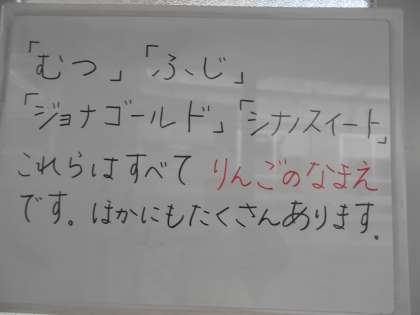 「むつ」「ふじ」
「ジョナゴールド」「シナノスイート」
これらはすべて りんごのなまえ
です。ほかにもたくさんあります。